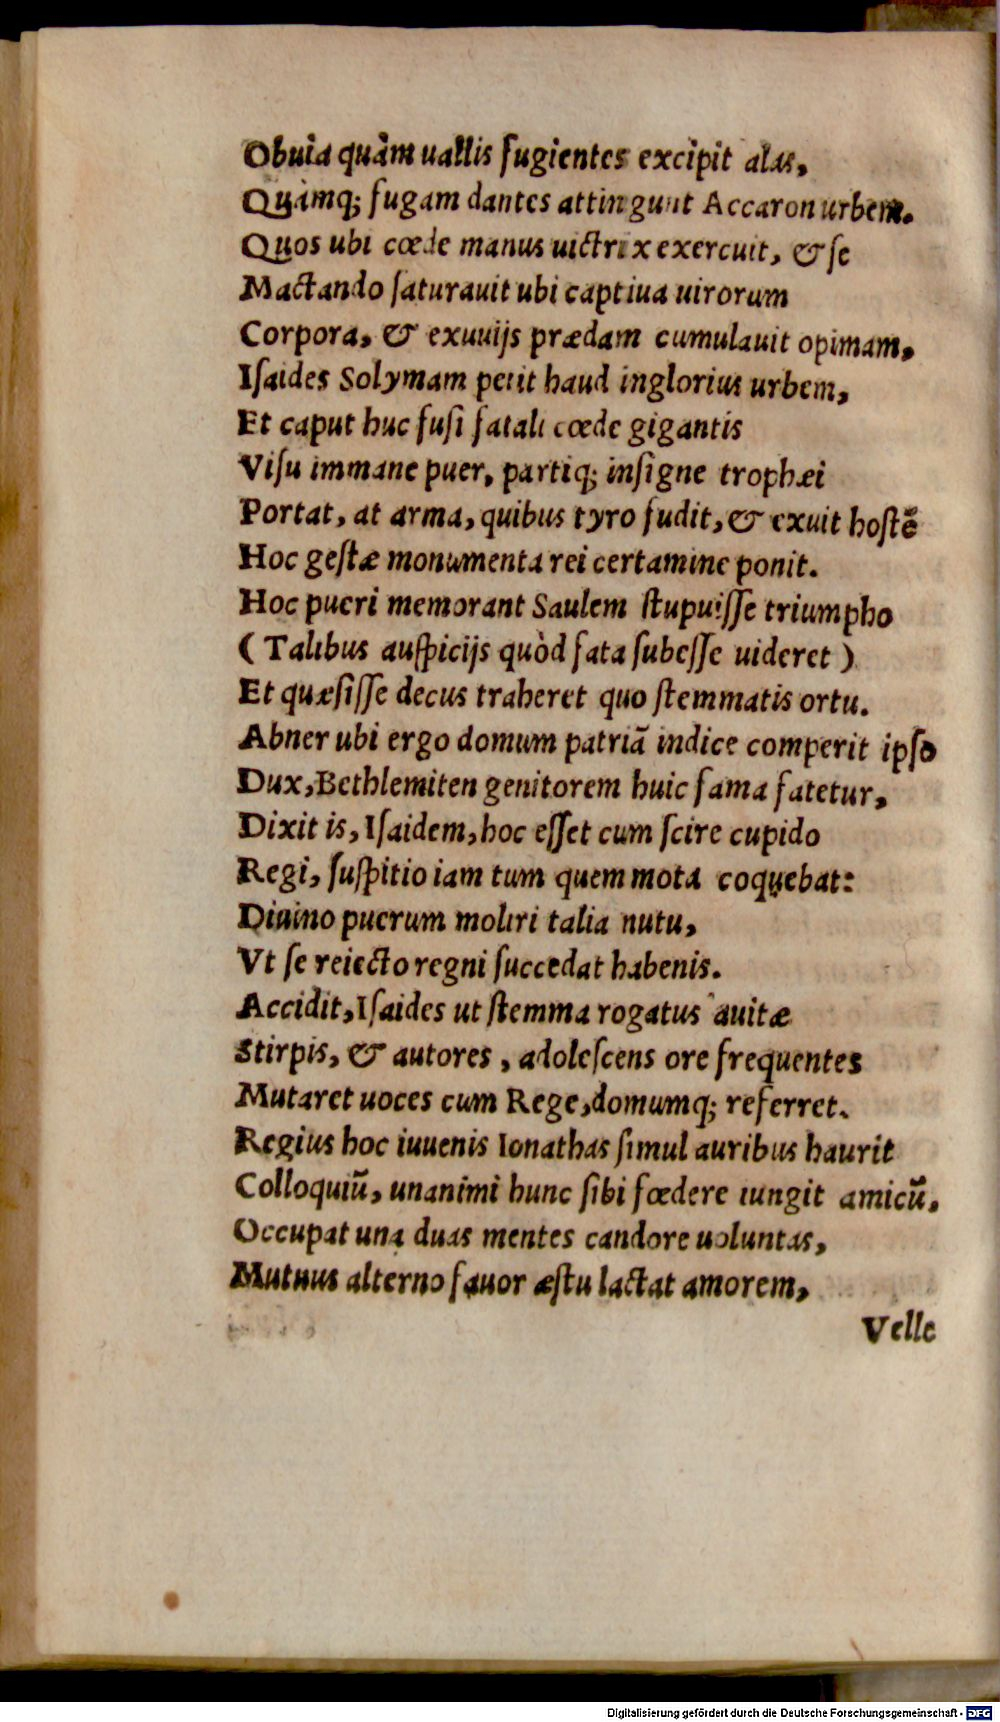 Obuia quàm uallis fugientes excipit alas,
Quàmq; fugam dantes attingunt Accaron urbem.
Quos ubi cœde manus uictrix exercuit, & se
Mactando saturauit ubi captiua uirorum
Corpora, & exuuijs prædam cumulauit opimam,
Isaides Solymam petit haud inglorius urbem,
Et caput huc fusi fatali cœde gigantis
Visu immane puer, partiq; insigne trophæi
Portat, at arma, quibus tyro fudit, & exuit hostẽ
Hoc gestæ monumenta rei certamine ponit.
Hoc pueri memorant Saulem stupuisse triumpho
(Talibus auspicijs quòd fata subesse uideret)
Et quæsisse decus traheret quo stemmatis ortu.
Abner ubi ergo domum patriã indice comperit ipso
Dux, Bethlemiten genitorem huic fama fatetur,
Dixit is, Isaidem, hoc esset cum scire cupido
Regi, suspitio iam tum quem mota coquebat:
Diuino puerum moliri talia nutu,
Vt se reiecto regni succedat habenis.
Accidit, Isaides ut stemma rogatus auitæ
Stirpis, & autores, adolescens ore frequentes
Mutaret uoces cum Rege, domumq; referret.
Regius hoc iuuenis Ionathas simul auribus haurit
Colloquiũ, unanimi hunc sibi fœdere iungit amicũ,
Occupat una duas mentes candore uoluntas,
Mutuus alterno fauor æstu lactat amorem,
Velle
Digitalisierung gefördert durch die Deutsche Forschungsgemeinschaft - DFG